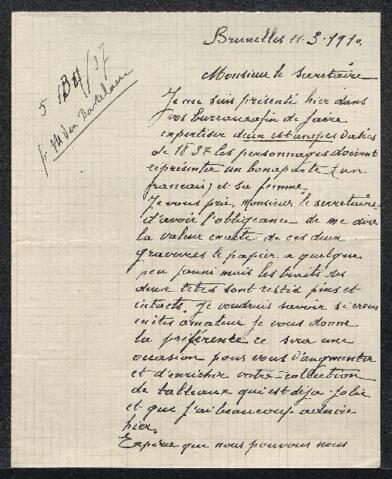 Bruxelles 11-3-1910.
5 /37
Mr Van
Monsieur le secretaire
Je me suis présenté hier dans
vos bureaux afin de faire
expertiser deux estampes datées
de 1837 les personnages doivent
représenter un bonaparte (un
francais) et sa femme
Je vous prie, monsieur le secretaire
d'avoir l'obligeance de me dire
la valeur exacte de ces deux
gravures le papier a quelque
peu jauni mais les traits des
deux têtes sont restés purs et
intacts. Je voudrais savoir si vous
en êtes amateur je vous donne
la préférence ce sera une
occasion pour vous d'augmenter
et d'enrichir votre collection
de tableaux qui est deja jolie
et que j'ai beaucoup admirée
hier.
Espère que nous pouvons nous